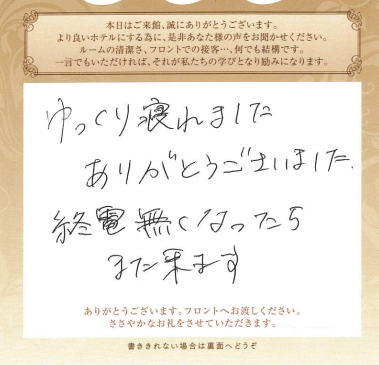 本日はご来館、誠にありがとうございます。
より良いホテルにする為に、是非あなた様の声をお聞かせください。
ルームの清潔さ、フロントでの接客…、何でも結構です。
一言でもいただければ、それが私たちの学びとなり励みになります。
ゆっくり寝れました
ありがとうございました.
終電無くなったら
また来ます
ありがとうございます。フロントへお渡しください。
ささやかなお礼をさせていただきます。
書ききれない場合は裏面へどうぞ